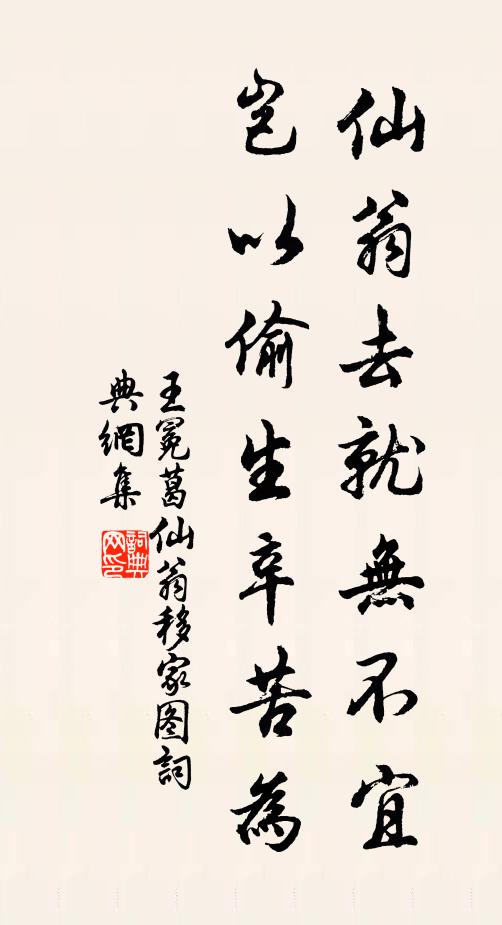 仙翁去就無不宜
豈以偷生辛苦為
王冕葛仙翁移家图詞
典網集
詞典
网印